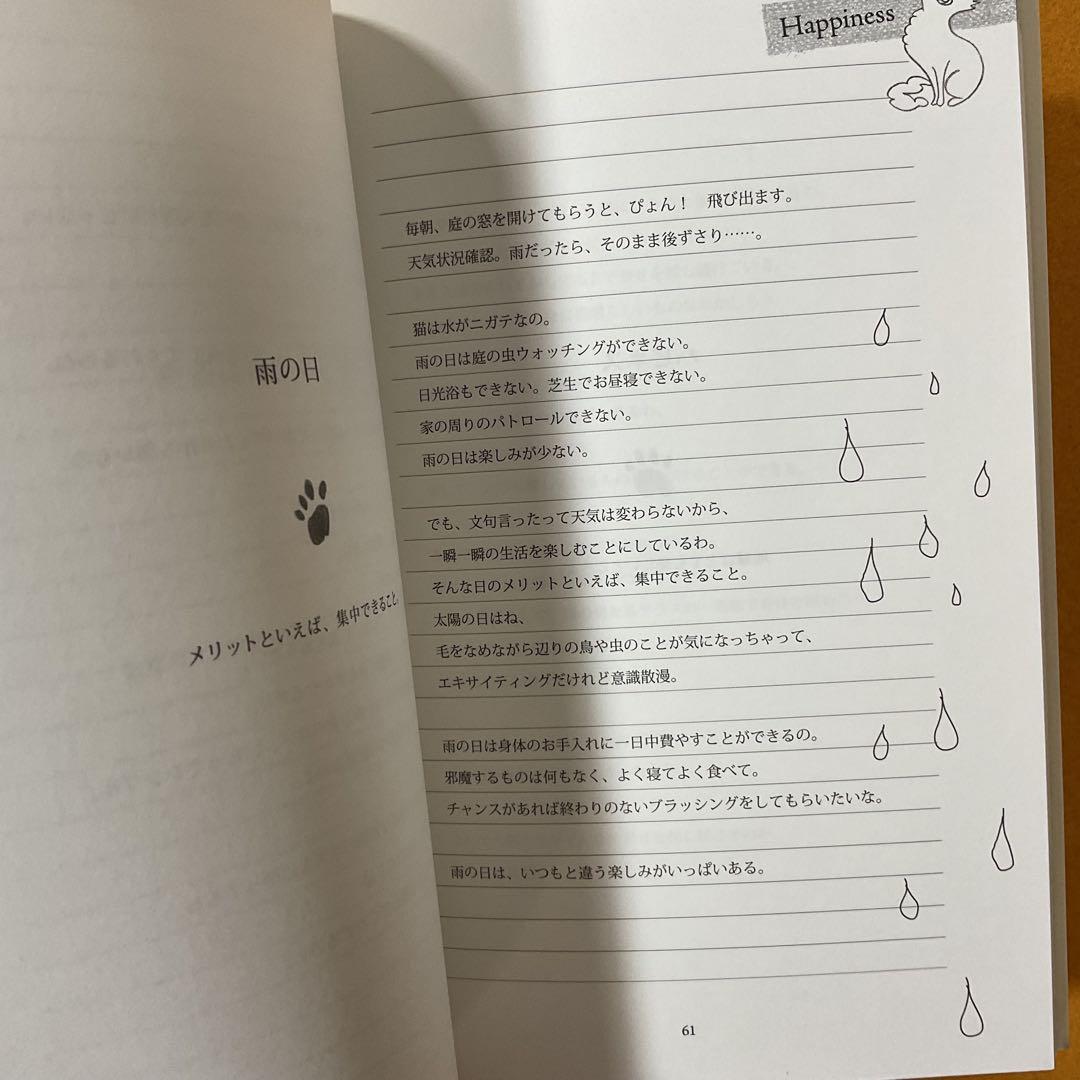 雨の日
メリットといえば、集中できること。
Happiness
毎朝、庭の窓を開けてもらうと、ぴょん！　飛び出ます。
天気状況確認。雨だったら、そのまま後ずさり……。
猫は水がニガテなの。
雨の日は庭の虫ウォッチングができない。
日光浴もできない。芝生でお昼寝できない。
家の周りのパトロールできない。
雨の日は楽しみが少ない。
でも、文句言ったって天気は変わらないから、
一瞬一瞬の生活を楽しむことにしているわ。
そんな日のメリットといえば、集中できること。
太陽の日はね、
毛をなめながら辺りの鳥や虫のことが気になっちゃって、
エキサイティングだけれど意識散漫。
雨の日は身体のお手入れに一日中費やすことができるの。
邪魔するものは何もなく、よく寝てよく食べて。
チャンスがあれば終わりのないブラッシングをしてもらいたいな。
雨の日は、いつもと違う楽しみがいっぱいある。
61